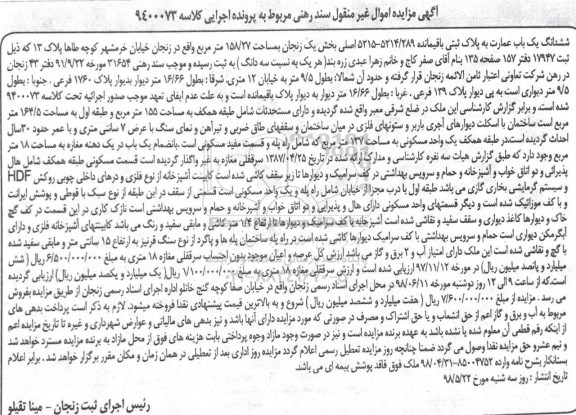 آگهی مزایده اموال غیر منقول سند رهنی مربوط به پرونده اجرایی کلاسه ۹۴۰۰۰۷۳
ششدانگ یک باب عمارت به پلاک ثبتی باقیمانده ۵۲۱۴/۲۸۹-۵۲۱۵ اصلی بخش یک زنجان بمساحت ۱۵۸/۲۷ متر مربع واقع در زنجان خیابان خرمشهر کوچه طاها پلاک ۱۳ که ذیل
ثبت ۱۷۹۴۷ دفتر ۱۵۷ صفحه ۱۳۵ بنام آقای صفر کاج و خانم زهرا عبدی زره بند( هر یک به نسبت سه دانگ ) به ثبت رسیده و موجب سند رهنی ۳۱۶۵۴ مورخه ۹۱/۹/۲۲ دفتر ۴۳ زنجان
در رهن شرکت تعاونی اعتبار ثامن الائمه زنجان قرار گرفته و حدود آن شمالا: بطول ۹/۵ متر به خیابان ۱۲ متری. شرقا : بطول ۱۶/۶۶ متر دیوار بدیوار پلاک ۱۷۶۰ فرعی . جنوبا : بطول
۹/۵ متر دیواری است به پی دیوار پلاک ۱۳۹ فرعی . غربا : بطول ۱۶/۶۶ متر دیوار به دیوار پلاک باقیمانده است و به علت عدم ایفای تعهد موجب صدور اجرائیه تحت کلاسه ۹۴۰۰۰۷۳
شده است. و برابر گزارش کارشناسی این ملک در ضلع شرقی ممبر واقع شده گردیده و دارای مستحدثات شامل طبقه همکف به مساحت ۱۵۵ متر مربع و طبقه اول به مساحت ۱۶۴/۵ متر
مربع است ساختمان با اسکلت دیوارهای آجری باربر و ستونهای فلزی در میان ساختمان و سقفهای طاق ضربی و تیرآهن و نمای سنگ با عرض ۷ سانتی متری و با عمر حدود ۳۰سال
احداث گردیده است.در طبقه همکف یک واحد مسکونی به مساحت ۱۳۷ متر مربع که شامل راه پله و قسمت مفید مسکونی است .بانضمام یک باب در یک دهنه مغازه به مساحت ۱۸ متر
مربع وجود دارد که طبق گزارش هیات سه نفره کارشناسی و مدارک ارائه شده در تاریخ ۱۳۸۷/۰۴/۲۵ سرقفلی مغازه به غیر واگذار گردیده است قسمت مسکونی طبقه همکف شامل هال
پذیرائی و دو اتاق خواب و آشپزخانه و حمام و سرویس بهداشتی در کف سرامیک و دیوارها تا زیر سقف کاشی شده است کابینت آشپزخانه از نوع فلزی و درهای داخلی چوبی روکش HDF
و سیستم گرمایشی بخاری گازی می باشد طبقه اول با درب مجزا از خیابان شامل راه پله و یک واحد مسکونی است قسمتی از سقف در این طبقه از نوع سبک با قوطی و پوشش ایرانت
و با کف موزائیک شده است و دیگر قسمتهای واحد مسکونی دارای هال و پذیرایی و دو اتاق خواب و آشپزخانه و حمام و سرویس بهداشتی است نازک کاری در این قسمت در کف گچ
خاک و دیوارها کاغذ دیواری و سقف سفید و نقاشی شده است آشپزخانه با کف سرامیک و دیوارها تا ارتفاع ۱/۴ متر کاشی و مابقی سفید و رنگ می باشد کابینتهای آشپزخانه فلزی و دارای
آبگرمکن دیواری است حمام و سرویس بهداشتی با کف سرامیک دیوارها کاشی شده است در راه پله ساختمان پله ها و پاگرد از نوع سنگ قرنیز به ارتفاع ۱۵ سانتی متر و مابقی سفید شده
با گچ و نقاشی شده است این ملک دارای امتیاز آب ۲ و برق و گاز می باشد ارزش کل عرصه و اعیان موجود بدون احتساب سرقفلی مغازه ۱۸ متری به مبلغ ۶/۵۰۰/۰۰۰/۰۰۰ ریال ( شش
میلیارد و پانصد میلیون ریال) در مورخه ۹۷/۱۱/۱۲ ارزیابی شده است و ارزش سرقفلی مغازه ۱۸ متری به مبلغ ۱/۱۰۰/۰۰۰/۰۰۰ ریال( یک میلیارد و یکصد میلیون ریال) ارزیابی گردیده
است.که از ساعت ۹ الی ۱۲ روز دوشنبه مورخه ۹۸/۰۶/۱۱ در محل اجرای اسناد رسمی زنجان واقع در خیابان صفا کوچه گنج خانلو اداره اجرای اسناد رسمی زنجان از طریق مزایده بفروش
می رسد . مزایده از مبلغ ۷/۶۰۰/۰۰۰/۰۰۰ ریال ( هفت میلیارد و ششصد میلیون ریال) شروع و به بالاترین قیمت پیشنهادی نقدا فروخته میشود. لازم به ذکر است پرداخت بدهی های
مربوط به آب و برق و گاز اعم از حق انشعاب و یا حق اشتراک و مصرف در صورتی که مورد مزایده دارای آنها باشد و نیز بدهی های مالیاتی و عوارض شهرداری و غیره تا تاریخ مزایده اعم
از اینکه رقم قطعی آن معلوم شده یا نشده باشد به عهده برنده مزایده است و نیز در صورت وجود مازاد وجوه پرداختی بابت هزینه های فوق از محل مازاد به برنده مزایده مسترد خواهد شد
و نیم عشر و حق مزایده نقدا وصول می گردد ضمنا چنانچه روز مزایده تعطیل رسمی اعلام گردد مزایده روز اداری بعد از تعطیلی در همان زمان و مکان مقرر برگزار خواهد شد . برابر اعلام
بستانکار بشرح نامه وارده ۸۵۰۰۴۷۵۲-۹۸/۰۴/۳۱ ملک فوق فاقد پوشش بیمه ای می باشد.
تاریخ انتشار : روز سه شنبه مورخ ۹۸/۵/۲۲
رئیس اجرای ثبت زنجان - مینا تقیلو